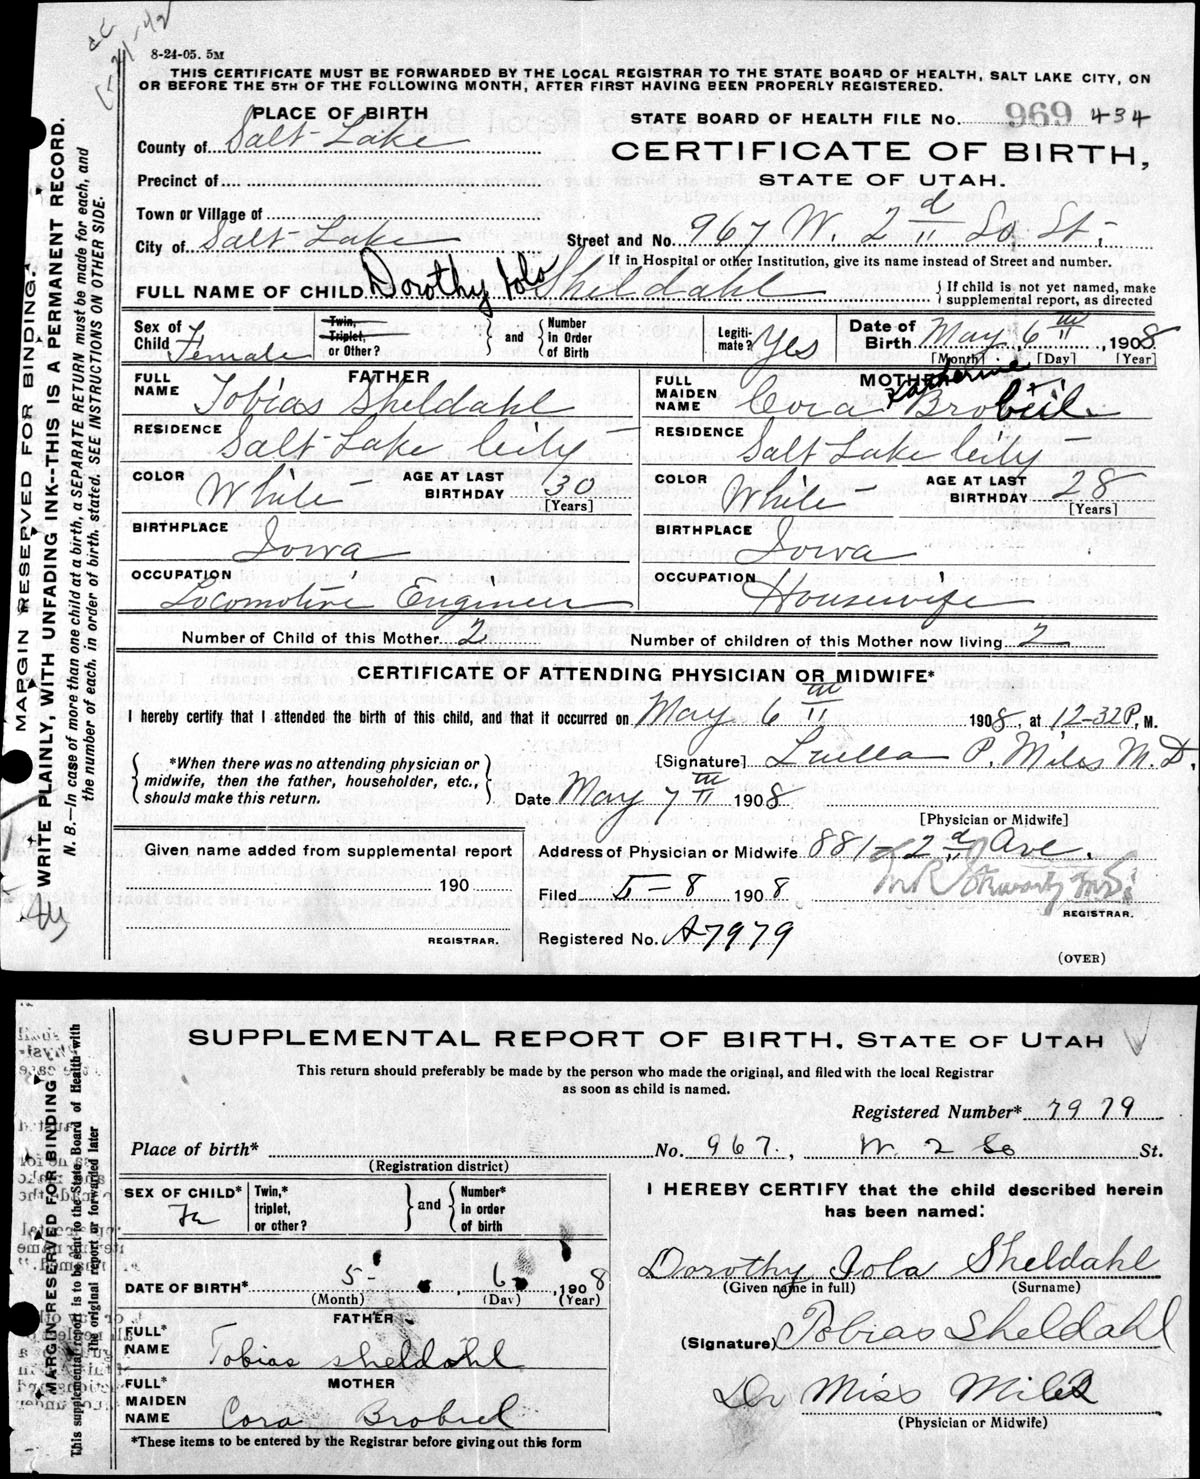 8-24-05. 5M
THIS CERTIFICATE MUST BE FORWARDED BY THE LOCAL REGISTRAR TO THE STATE BOARD OF HEALTH, SALT LAKE CITY, ON
OR BEFORE THE 5TH OF THE FOLLOWING MONTH, AFTER FIRST HAVING BEEN PROPERLY REGISTERED.
PLACE OF BIRTH
County of Salt Lake
Precinct of
Town or Village of
City of Salt Lake
STATE BOARD OF HEALTH FILE No. 969 434
CERTIFICATE OF BIRTH,
STATE OF UTAH.
Street and No. 967 W. 2d So. St.
If in Hospital or other Institution, give its name instead of Street and number.
FULL NAME OF CHILD Dorothy Iola Sheldahl
If child is not yet named, make
supplemental report, as directed
Sex of Child Female
Twin, Triplet, or Other?
and
Number in Order of Birth
Legitimate? Yes
Date of Birth May 6th, 1908
[Month] [Day] [Year]
FATHER
FULL NAME Tobias Sheldahl
RESIDENCE Salt Lake City
COLOR White
AGE AT LAST BIRTHDAY 30
[Years]
BIRTHPLACE Iowa
OCCUPATION Locomotive Engineer
MOTHER
FULL MAIDEN NAME Cora Katherine Brobeil
RESIDENCE Salt Lake City
COLOR White
AGE AT LAST BIRTHDAY 28
[Years]
BIRTHPLACE Iowa
OCCUPATION Housewife
Number of Child of this Mother 2
Number of children of this Mother now living 2
CERTIFICATE OF ATTENDING PHYSICIAN OR MIDWIFE*
I hereby certify that I attended the birth of this child, and that it occurred on May 6th 1908, at 12-32 P. M.
*When there was no attending physician or
midwife, then the father, householder, etc.,
should make this return.
[Signature] Luella P. Miles M.D.
Date May 7th 1908
[Physician or Midwife]
Given name added from supplemental report
190
REGISTRAR.
Address of Physician or Midwife 881-2d Ave.
Filed 5-8 1908
REGISTRAR.
Registered No. A7979
(OVER)
MARGIN RESERVED FOR BINDING.
WRITE PLAINLY, WITH UNFADING INK--THIS IS A PERMANENT RECORD.
N. B.—In case of more than one child at a birth, a SEPARATE RETURN must be made for each, and
the number of each, in order of birth, stated. SEE INSTRUCTIONS ON OTHER SIDE.
SUPPLEMENTAL REPORT OF BIRTH, STATE OF UTAH
This return should preferably be made by the person who made the original, and filed with the local Registrar
as soon as child is named.
Registered Number* 7979
Place of birth*
No. 967, W. 2 So St.
(Registration district)
SEX OF CHILD*
Twin,* triplet, or other?
and
Number* in order of birth
DATE OF BIRTH* 5- 6, 1908
(Month) (Day) (Year)
FATHER
FULL* NAME Tobias Sheldahl
MOTHER
FULL* MAIDEN NAME Cora Brobiel
*These items to be entered by the Registrar before giving out this form
I HEREBY CERTIFY that the child described herein
has been named:
Dorothy Iola Sheldahl
(Given name in full) (Surname)
(Signature) Tobias Sheldahl
Dr Miss Miles
(Physician or Midwife)
MARGIN RESERVED FOR BINDING
This supplemental report is to be sent to the State Board of Health with
the original report or forwarded later